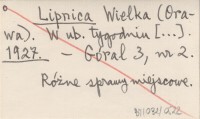 Lipnica Wielka (Ora-
wa). W ub. tygodniu [...].
1927. - Góral 3, nr 2.
Różne sprawy miejscowe.